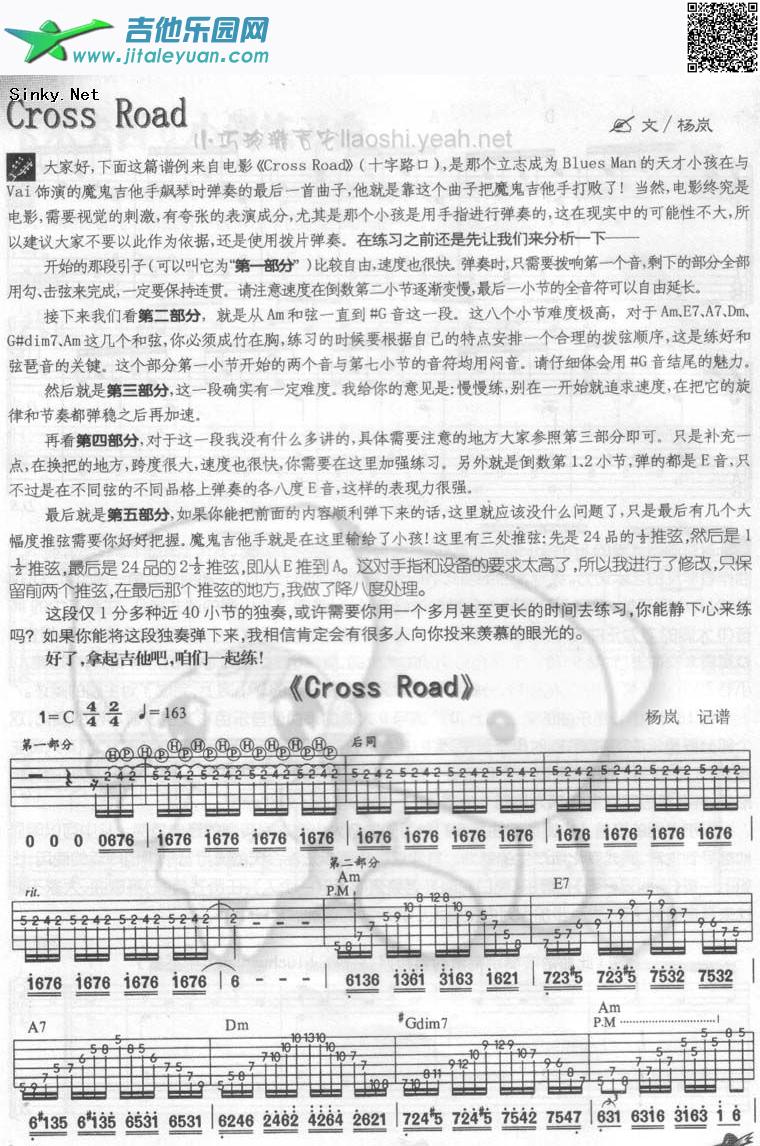 吉他乐园网
www.jitaleyuan.com
Sinky.Net
Cross Road
文/杨岚
大家好,下面这篇谱例来自电影《Cross Road》(十字路口),是那个立志成为Blues Man的天才小孩在与
Vai饰演的魔鬼吉他手飙琴时弹奏的最后一首曲子,他就是靠这个曲子把魔鬼吉他手打败了! 当然,电影终究是
电影,需要视觉的刺激,有夸张的表演成分,尤其是那个小孩是用手指进行弹奏的,这在现实中的可能性不大,所
以建议大家不要以此作为依据,还是使用拨片弹奏。在练习之前还是先让我们来分析一下——
开始的那段引子(可以叫它为“第一部分”)比较自由,速度也很快。弹奏时,只需要拨响第一个音,剩下的部分全部
用勾、击弦来完成,一定要保持连贯。请注意速度在倒数第二小节逐渐变慢,最后一小节的全音符可以自由延长。
接下来我们看第二部分，就是从Am和弦一直到#G音这一段。这八个小节难度极高，对于Am、E7、A7、Dm、
G#dim7、Am这几个和弦,你必须成竹在胸,练习的时候要根据自己的特点安排一个合理的拨弦顺序,这是练好和
弦琶音的关键。这个部分第一小节开始的两个音与第七小节的音符均用闷音。请仔细体会用#G音结尾的魅力。
然后就是第三部分,这一段确实有一定难度。我给你的意见是:慢慢练,别在一开始就追求速度,在把它的旋
律和节奏都弹稳之后再加速。
再看第四部分,对于这一段我没有什么多讲的,具体需要注意的地方大家参照第三部分即可。只是补充一
点,在换把的地方,跨度很大,速度也很快,你需要在这里加强练习。另外就是倒数第1、2小节,弹的都是E音,只
不过是在不同弦的不同品格上弹奏的各八度E音,这样的表现力很强。
最后就是第五部分,如果你能把前面的内容顺利弹下来的话,这里就应该没什么问题了,只是最后有几个大
幅度推弦需要你好好把握。魔鬼吉他手就是在这里输给了小孩!这里有三处推弦:先是24品的½推弦,然后是1
½推弦,最后是24品的2½推弦,即从E推到A。这对手指和设备的要求太高了,所以我进行了修改,只保
留前两个推弦,在最后那个推弦的地方,我做了降八度处理。
这段仅1分多种近40小节的独奏,或许需要你用一个多月甚至更长的时间去练习,你能静下心来练
吗? 如果你能将这段独奏弹下来,我相信肯定会有很多人向你投来羡慕的眼光的。
好了,拿起吉他吧,咱们一起练!
《Cross Road》
1=C 4/4 2/4 ♩=163
杨岚 记谱
第一部分 后同
0 0 0 0676 | 1676 1676 1676 1676 | 1676 1676 1676 1676 | 1676 1676 1676 1676
第二部分
rit. P.M Am E7
1676 1676 1676 1676 | 6 - - - | 6136 1361 3163 1621 | 723#5 723#5 7532 7532
A7 Dm #Gdim7 Am P.M
6#135 6#135 6531 6531 | 6246 2462 4264 2621 | 724#5 724#5 7542 7547 | 631 6316 3163 1 6